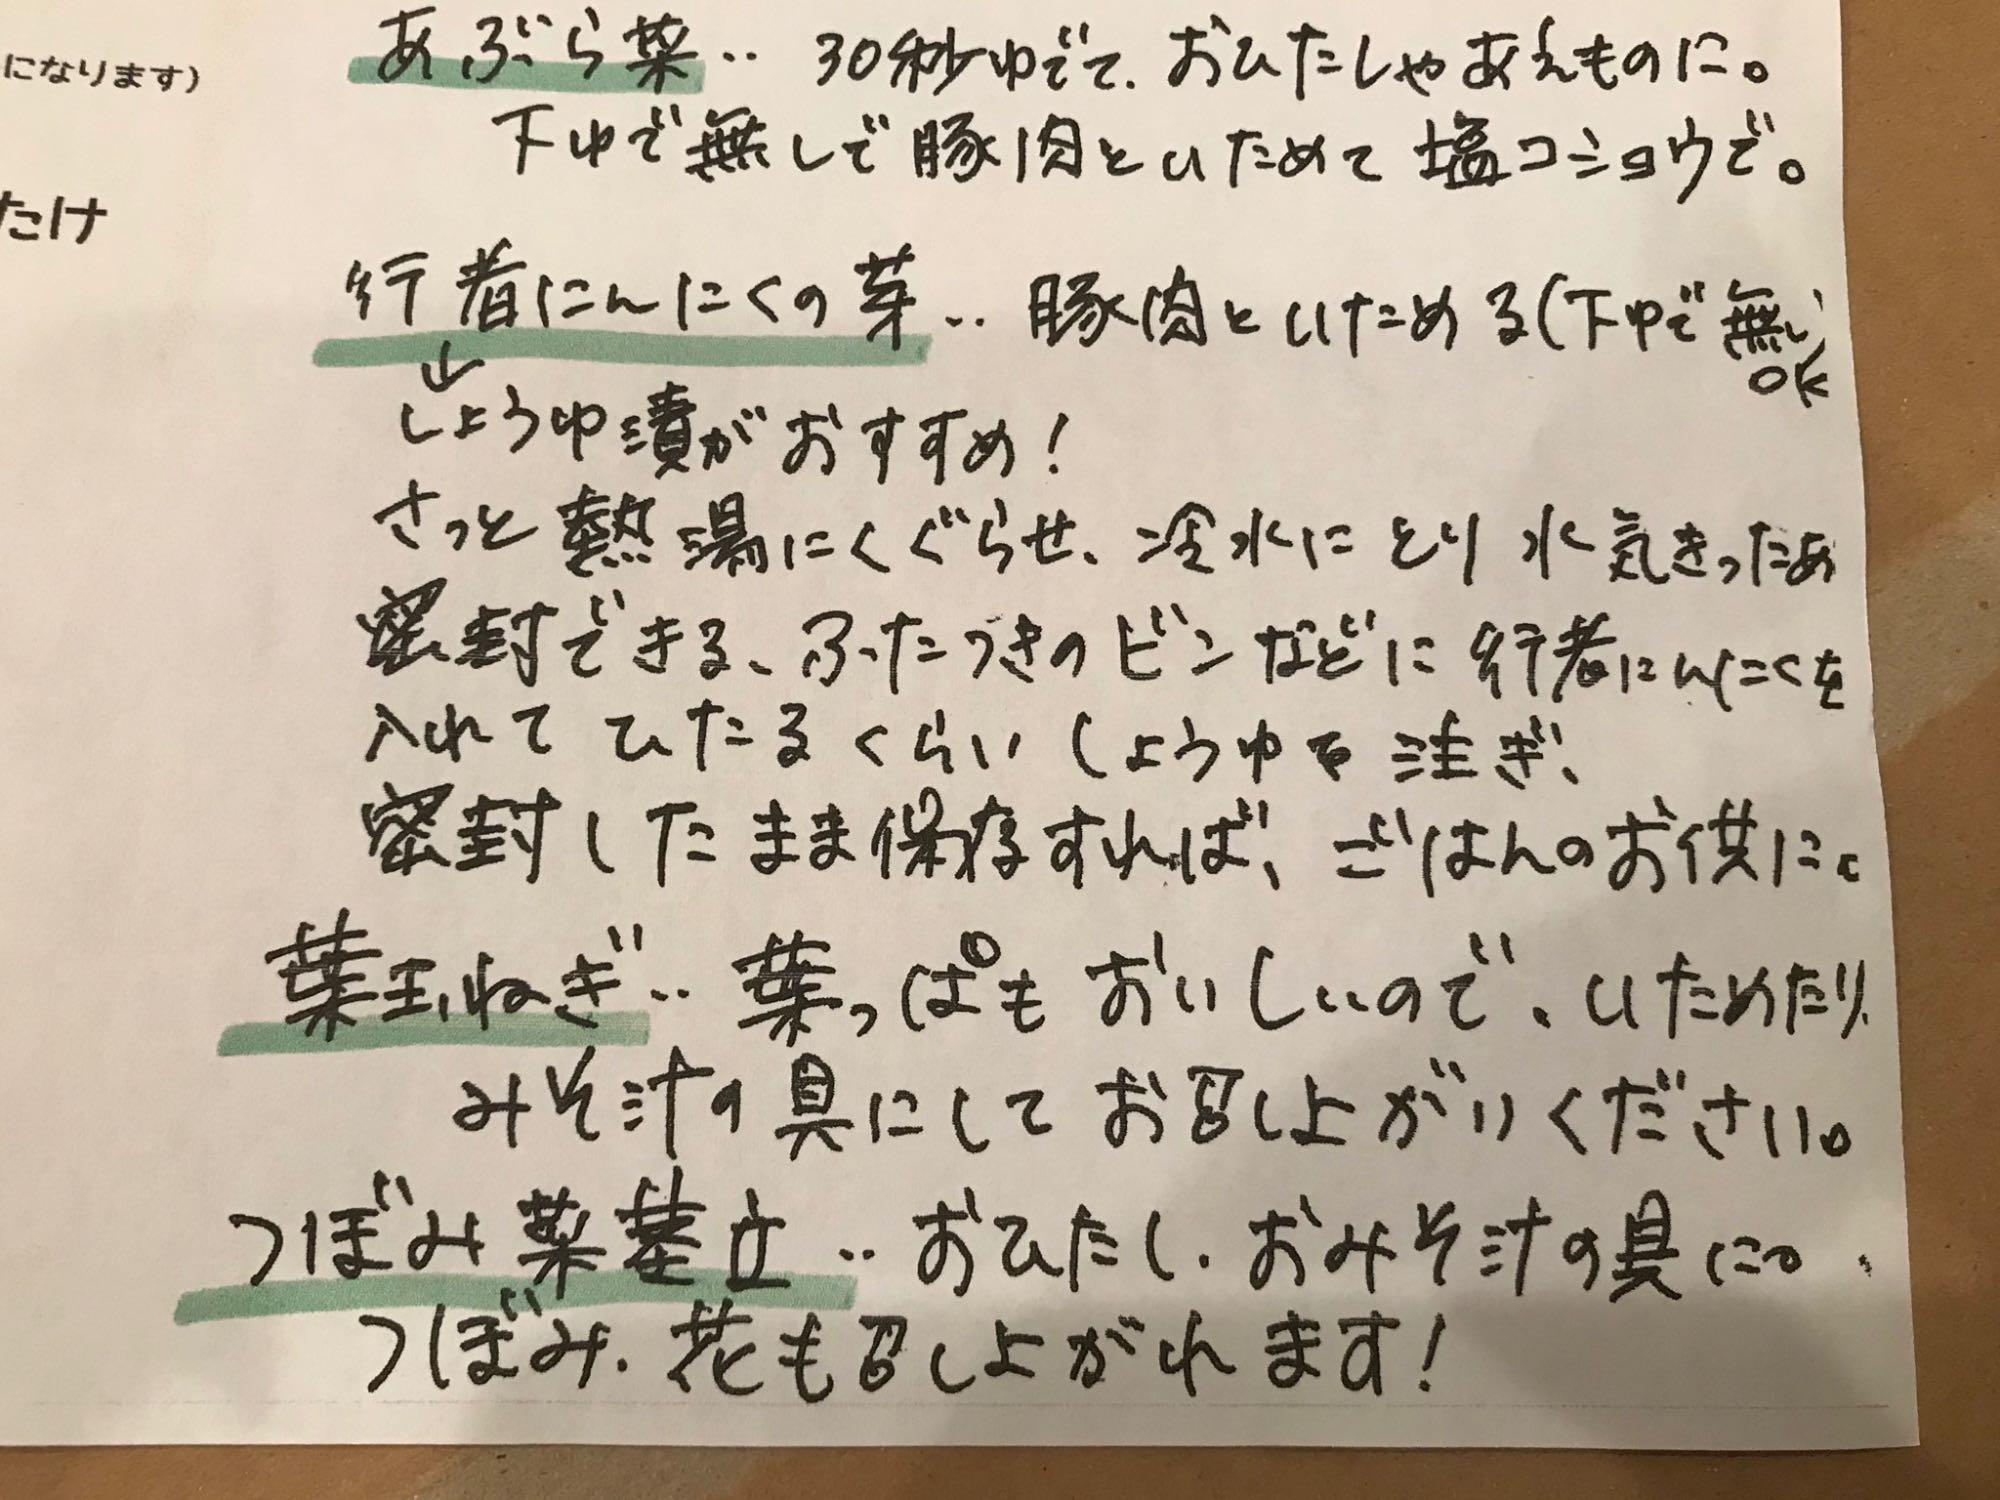 になります)
たけ
あぶら菜‥ 30秒ゆでて、おひたしやあえものに。
下ゆで無しで豚肉といためて塩コショウで。
行者にんにくの芽‥ 豚肉といためる(下ゆで無し
OK
↓
しょうゆ漬がおすすめ!
さっと熱湯にくぐらせ、冷水にとり水気きったあ
密封できる、ふたつきのビンなどに行者にんにくを
入れてひたるくらいしょうゆを注ぎ、
密封したまま保存すれば、ごはんのお供に。
葉玉ねぎ‥ 葉っぱもおいしいので、いためたり、
みそ汁の具にしてお召し上がりください。
つぼみ菜茎立‥ おひたし、おみそ汁の具に。
つぼみ、花も召し上がれます!